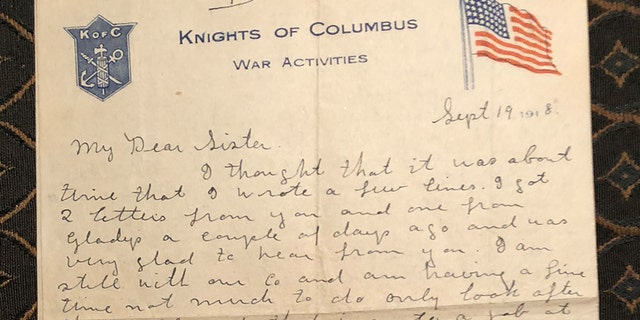 K OF C
KNIGHTS OF COLUMBUS
WAR ACTIVITIES
Sept 19, 1918.
My Dear Sister.
I thought that it was about
time that I wrote a few lines. I got
2 letters from you and one from
Gladys a couple of days ago and was
very glad to hear from you. I am
still with our Co and am having a fine
time not much to do only look after
job at